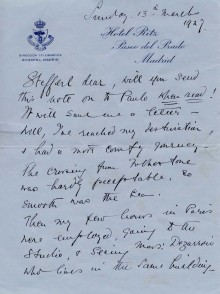 Sunday 13th March
1927.
Hotel Ritz
Paseo del Prado
Madrid
dear, will you send
this note on to Paulo when read!
It will save me a letter –
Well, I've reached my destination
& had a most comfy journey.
The crossing from Folkestone
was hardly perceptable, so
smooth was the sea.
Then my few hours in Paris
were employed, going to an
Studio, & seeing
who lives in the same building